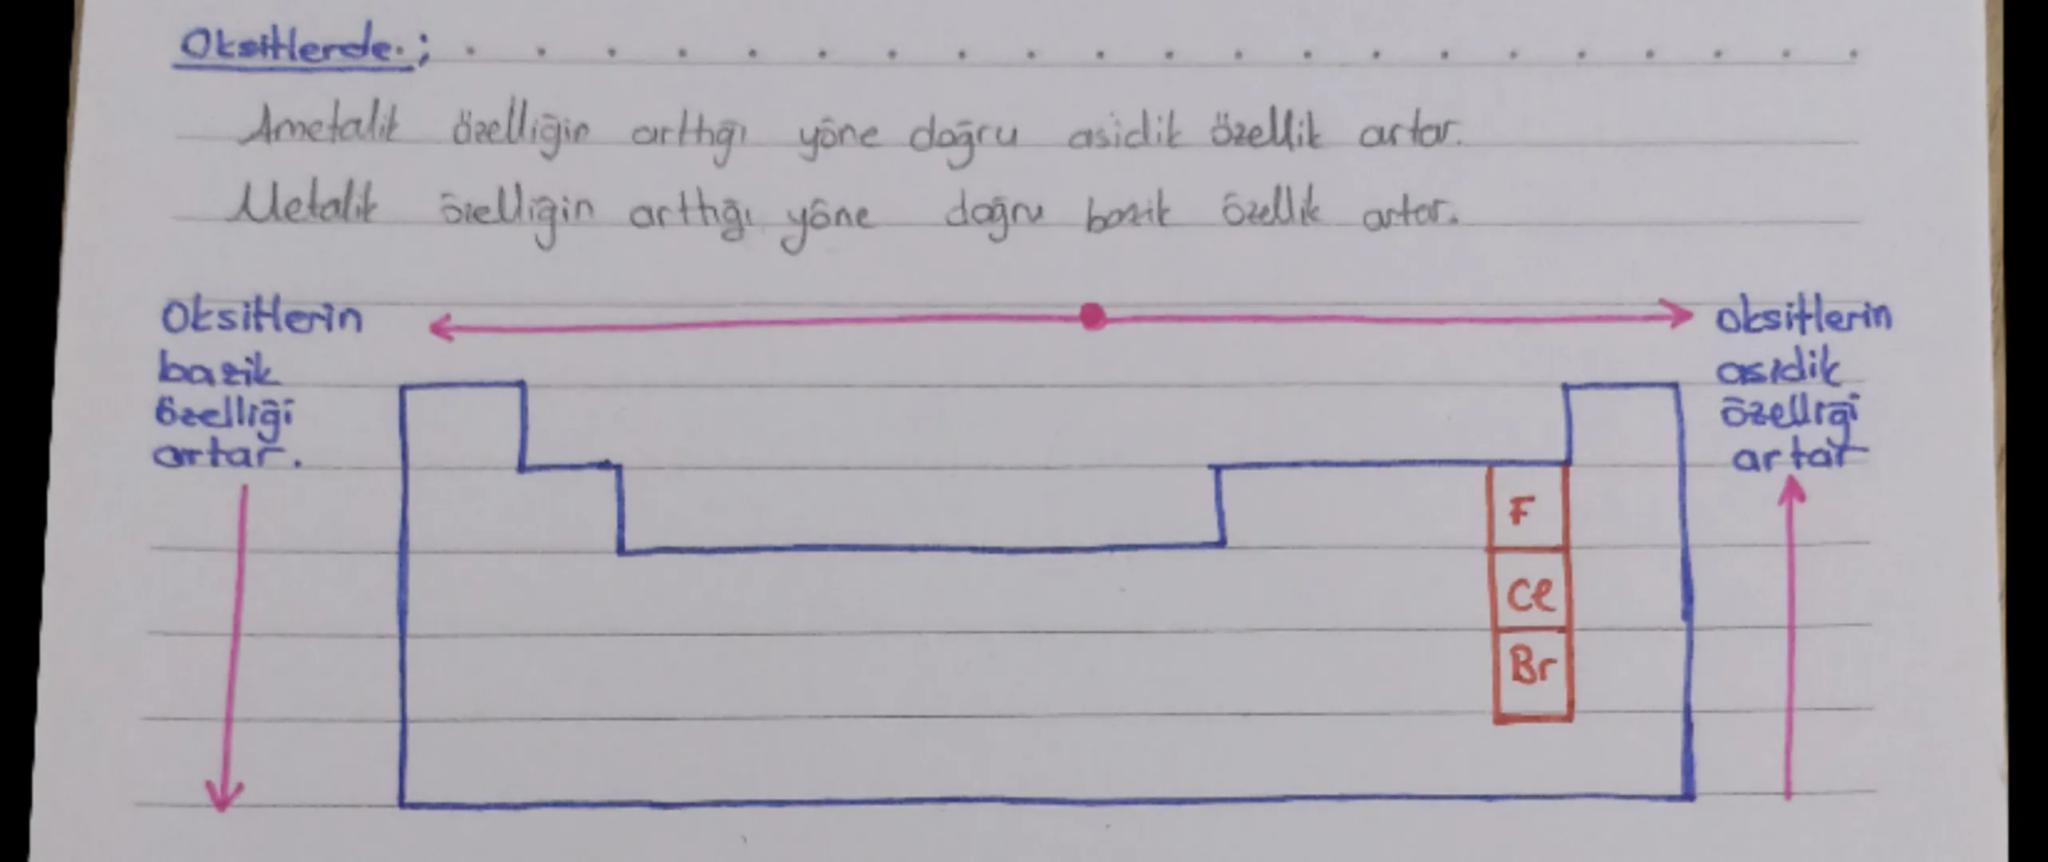 Oksitlerde;
Ametalik özelliğin arttığı yöne doğru asidik özellik artar.
Metalik özelliğin arttığı yöne doğru bazik özellik artar.
Oksitlerin
bazik
özelliği
artar.
oksitlerin
asidik
özelliği
artar
F
Cl
Br